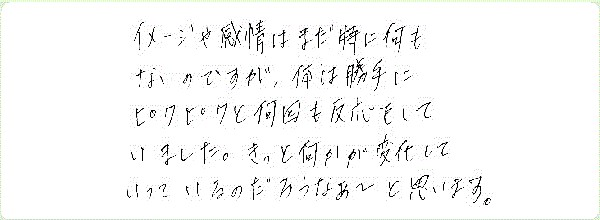 イメージや感情はまだ特に何も
ないのですが、体は勝手に
ピクピクと何回も反応をして
いました。きっと何かが変化して
いっているのだろうなぁ〜と思います。